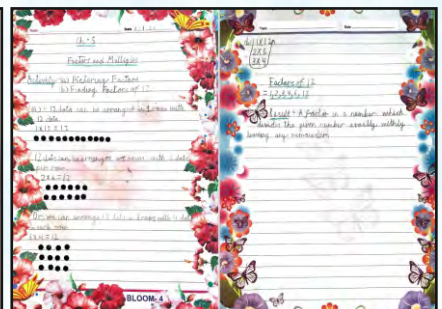 Ch - 5
Factors and Multiples
Activity a) Relering Factors
b) Finding Factors of 12
a) = 12 dots can be arranged in 1 row with
12 dots.
1x12 = 12
12 dots can be arranged in rows with 6 dots
2x6 = 12
Or, we can arrange 12 dots in 3 rows with 4 dots
in each row
3x4 = 12
BLOOM-4
b) 1x12
2x6
3x4
Factors of 12
= 1,2,3,4,6,12
Result = A factor is a number which
divides the given number exactly without
leaving any remainder.